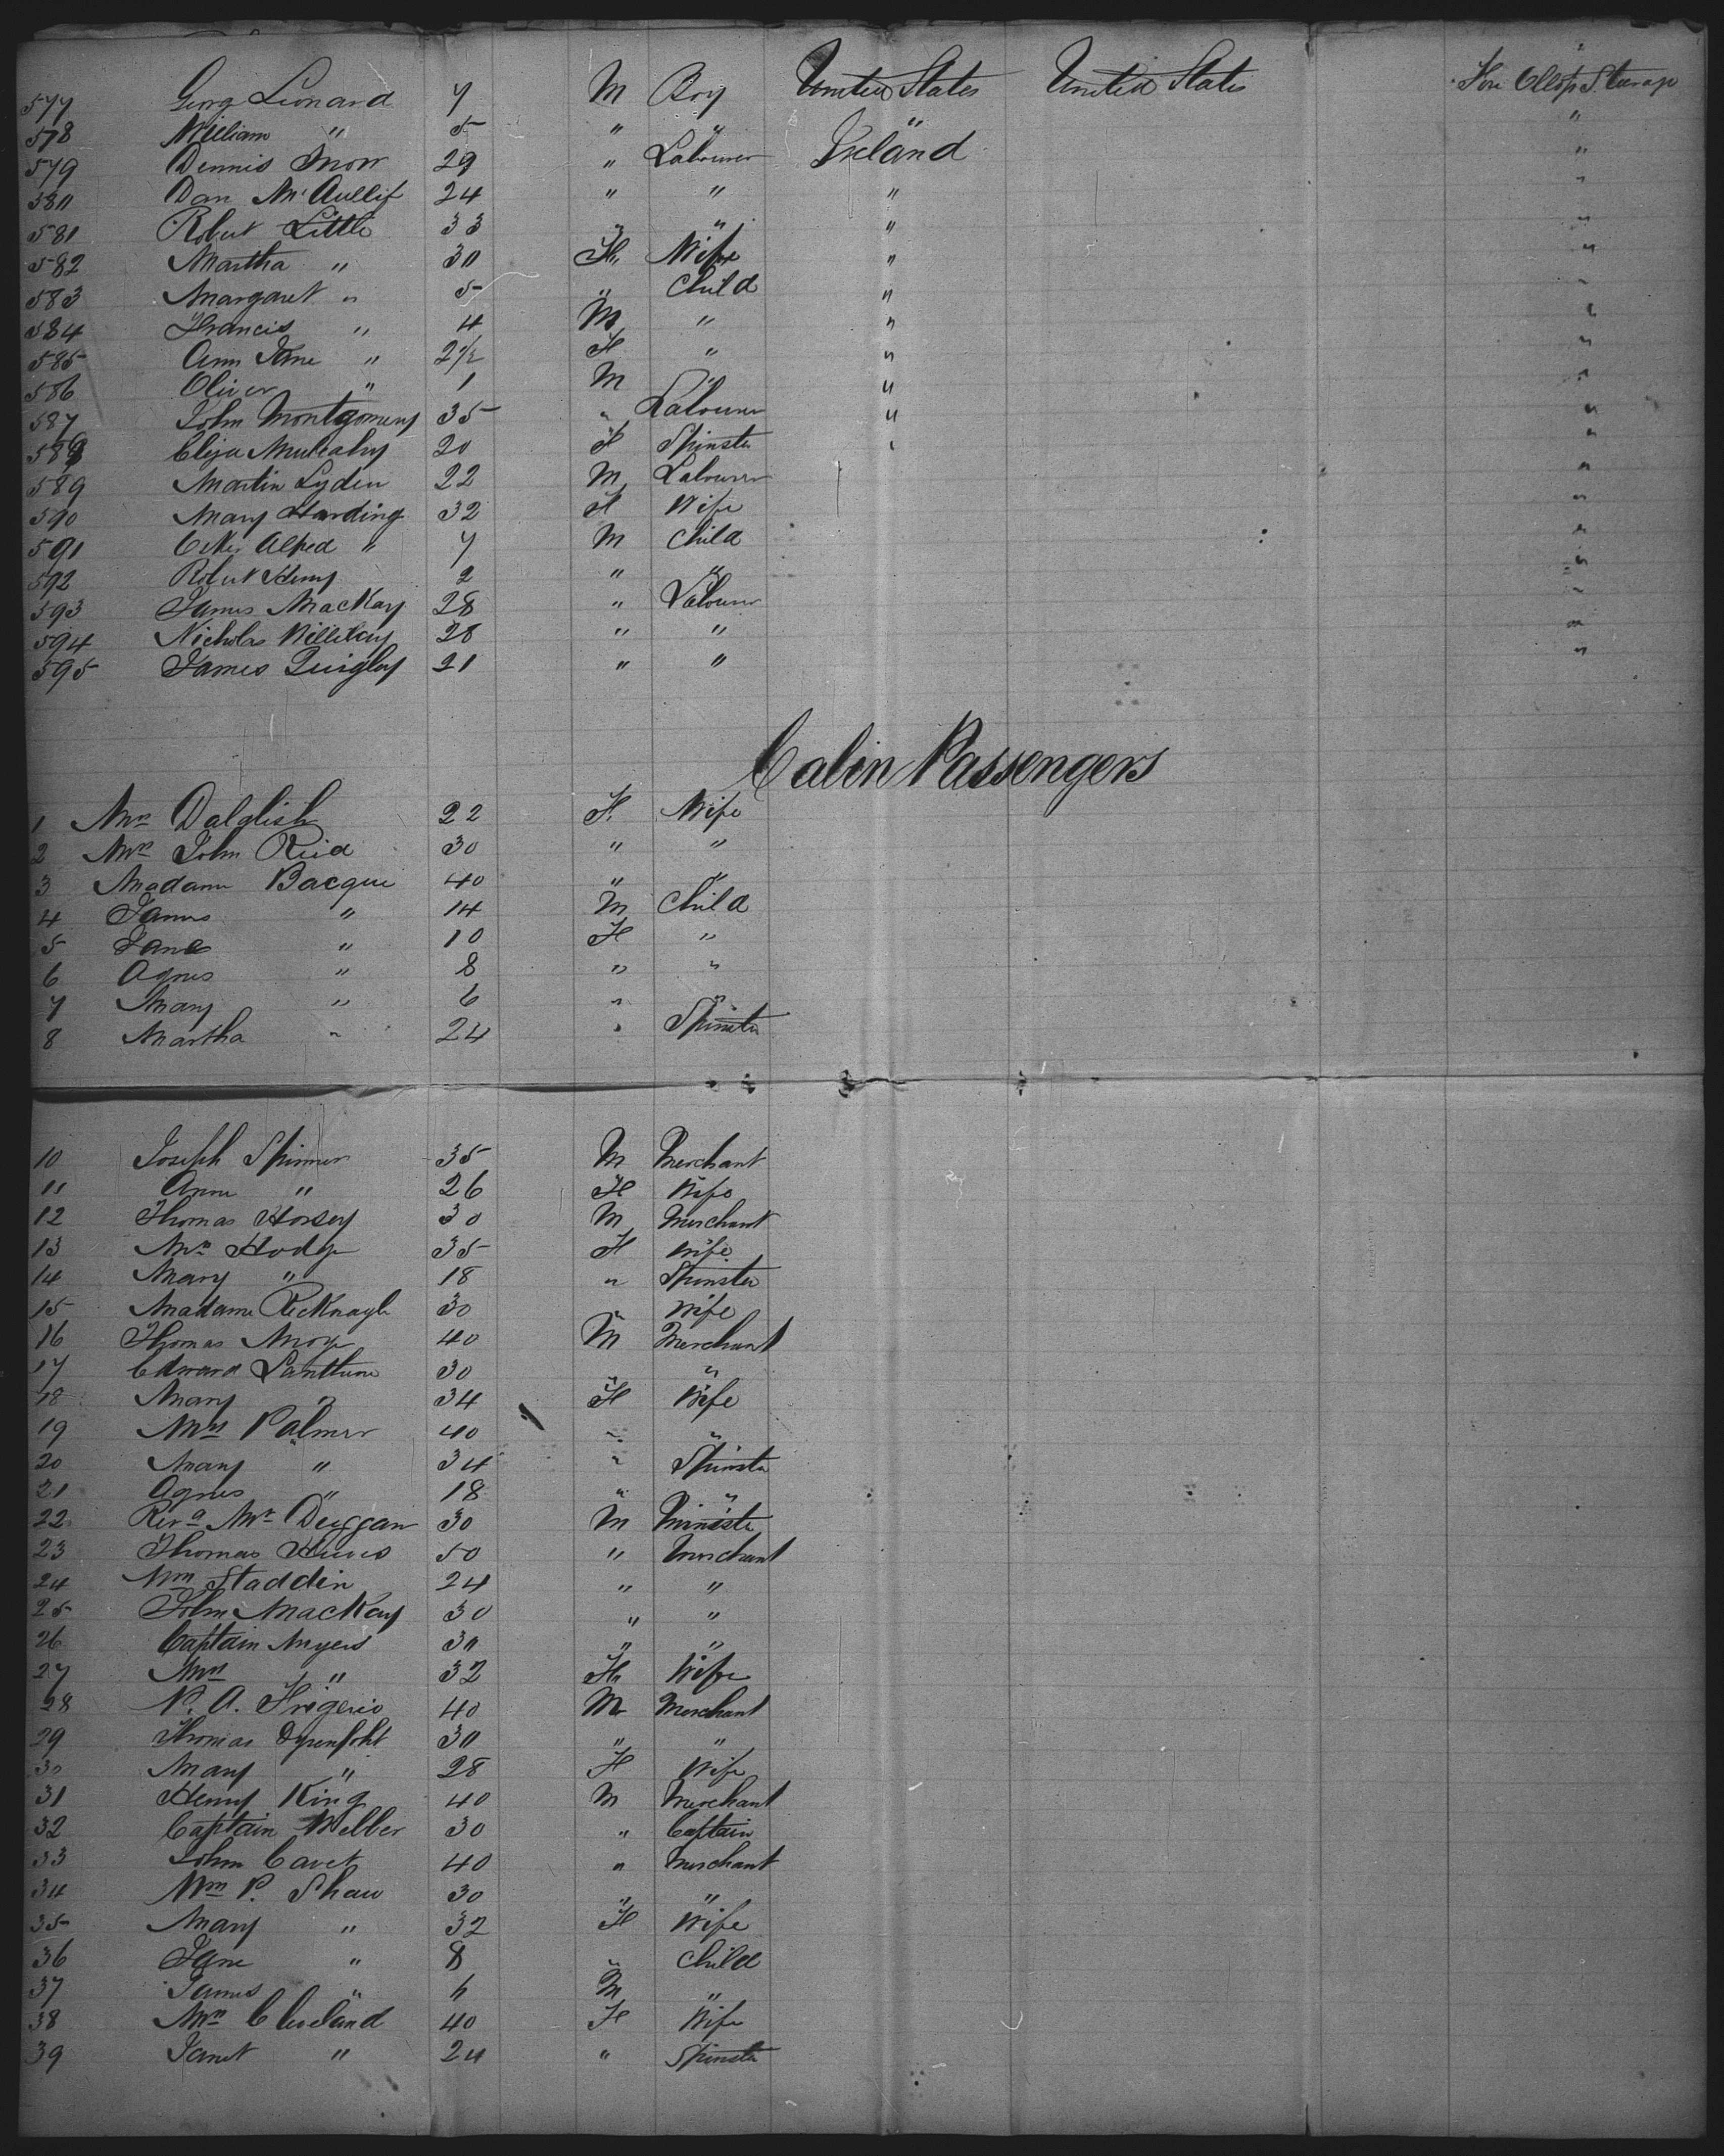 577 Georg Leonard 7 M Boy United States United States Steerage
578 William " 5 " " "
579 Dennis 29 " Labourer Ireland "
580 Dan McAullif 24 " " " "
581 Robert Little 33 " " " "
582 Martha " 30 F Wife " "
583 Margaret " 5 " Child " "
584 Francis " 4 M " " "
585 Ann Jane " 2 1/2 F " " "
586 Oliver " 1 M " " "
587 John Montgomery 35 " Labourer " "
588 Eliza Mulcahy 20 F Spinster " "
589 Martin Lyden 22 M Labourer "
590 Mary Harding 32 F Wife "
591 Alfred " 7 M Child "
592 Robert Henry 2 " " "
593 James MacKay 28 " Labourer "
594 Nicholas 28 " " "
595 James Quigley 21 " " "
Cabin Passengers
1 Mrs Dalglish 22 F. Wife
2 Mrs John Reid 30 " "
3 Madame Bacque 40 " "
4 James " 14 M Child
5 Jane " 10 F "
6 Agnes " 8 " "
7 Mary " 6 " "
8 Martha " 24 " Spinster
10 Joseph Skinner 35 M Merchant
11 Anne " 26 F Wife
12 Thomas Horsey 30 M Merchant
13 Mrs Hodge 35 F Wife
14 Mary " 18 " Spinster
15 Madame Recknagle 30 " Wife
16 Thomas 40 M Merchant
17 Edward 30 " "
18 Mary " 34 F Wife
19 Mrs Palmer 40 " "
20 Mary " 34 " Spinster
21 Agnes " 18 " "
22 Revd Mr Duggan 30 M Minister
23 Thomas 50 " Merchant
24 Wm Staddin 24 " "
25 John MacKay 30 " "
26 Captain Myers 30 " "
27 Mrs " 32 F Wife
28 P. A. Frigerio 40 M Merchant
29 Thomas 30 " "
30 Mary " 28 F Wife
31 Henry King 40 M Merchant
32 Captain Webber 30 " Captain
33 John Cavet 40 " Merchant
34 Wm P. Shaw 30 " "
35 Mary " 32 F Wife
36 Jane " 8 " Child
37 James " 6 M "
38 Mrs Cleveland 40 F Wife
39 Janet " 24 " Spinster